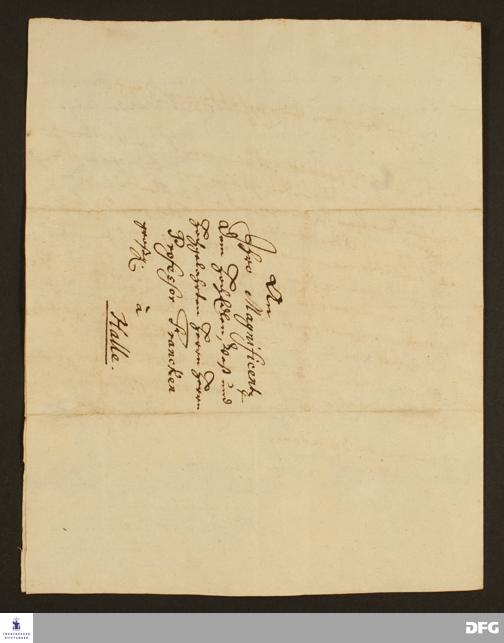 An
Ihro Magnificentz
Dem HochEdlen, Vest und
Hochgelahrten Herrn Herrn
Professor Francken
à
Halle.
FRANCKESCHE
STIFTUNGEN
DFG